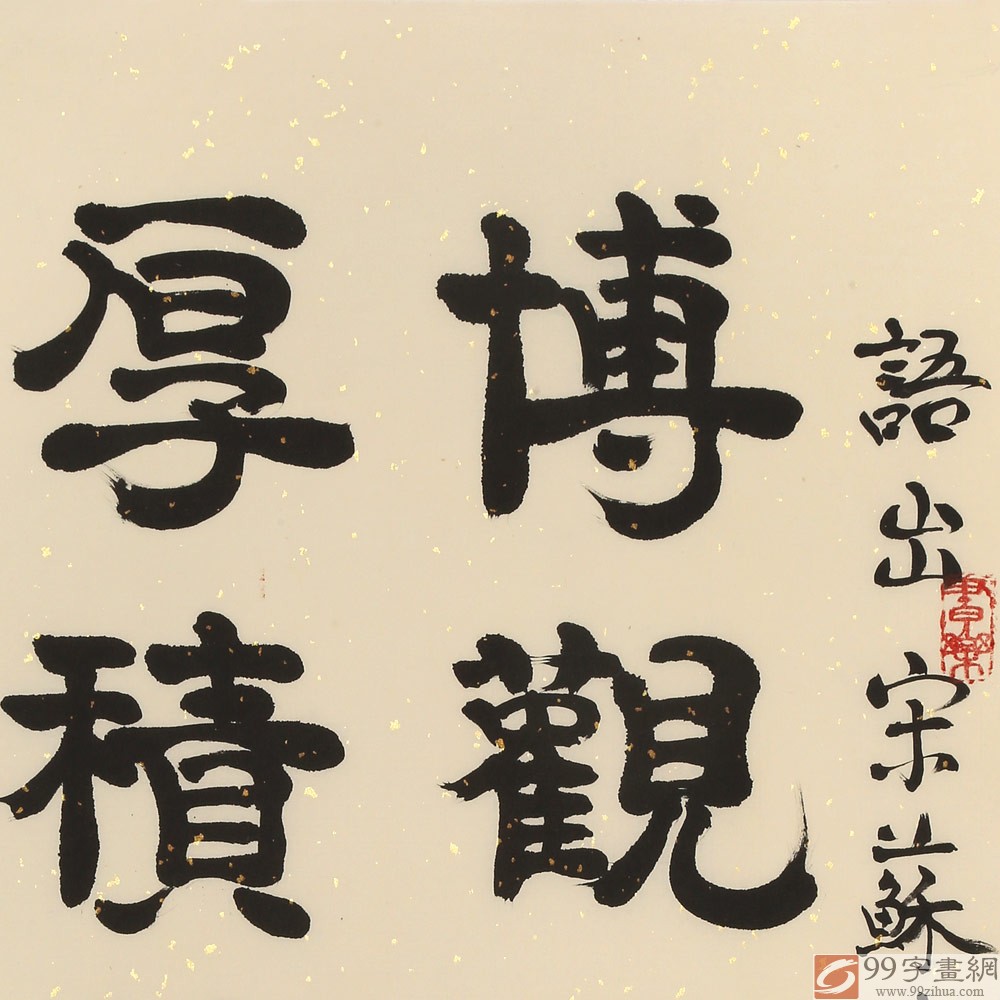 語出宋蘇
博觀
厚積
99字畫網
www.99zihua.com